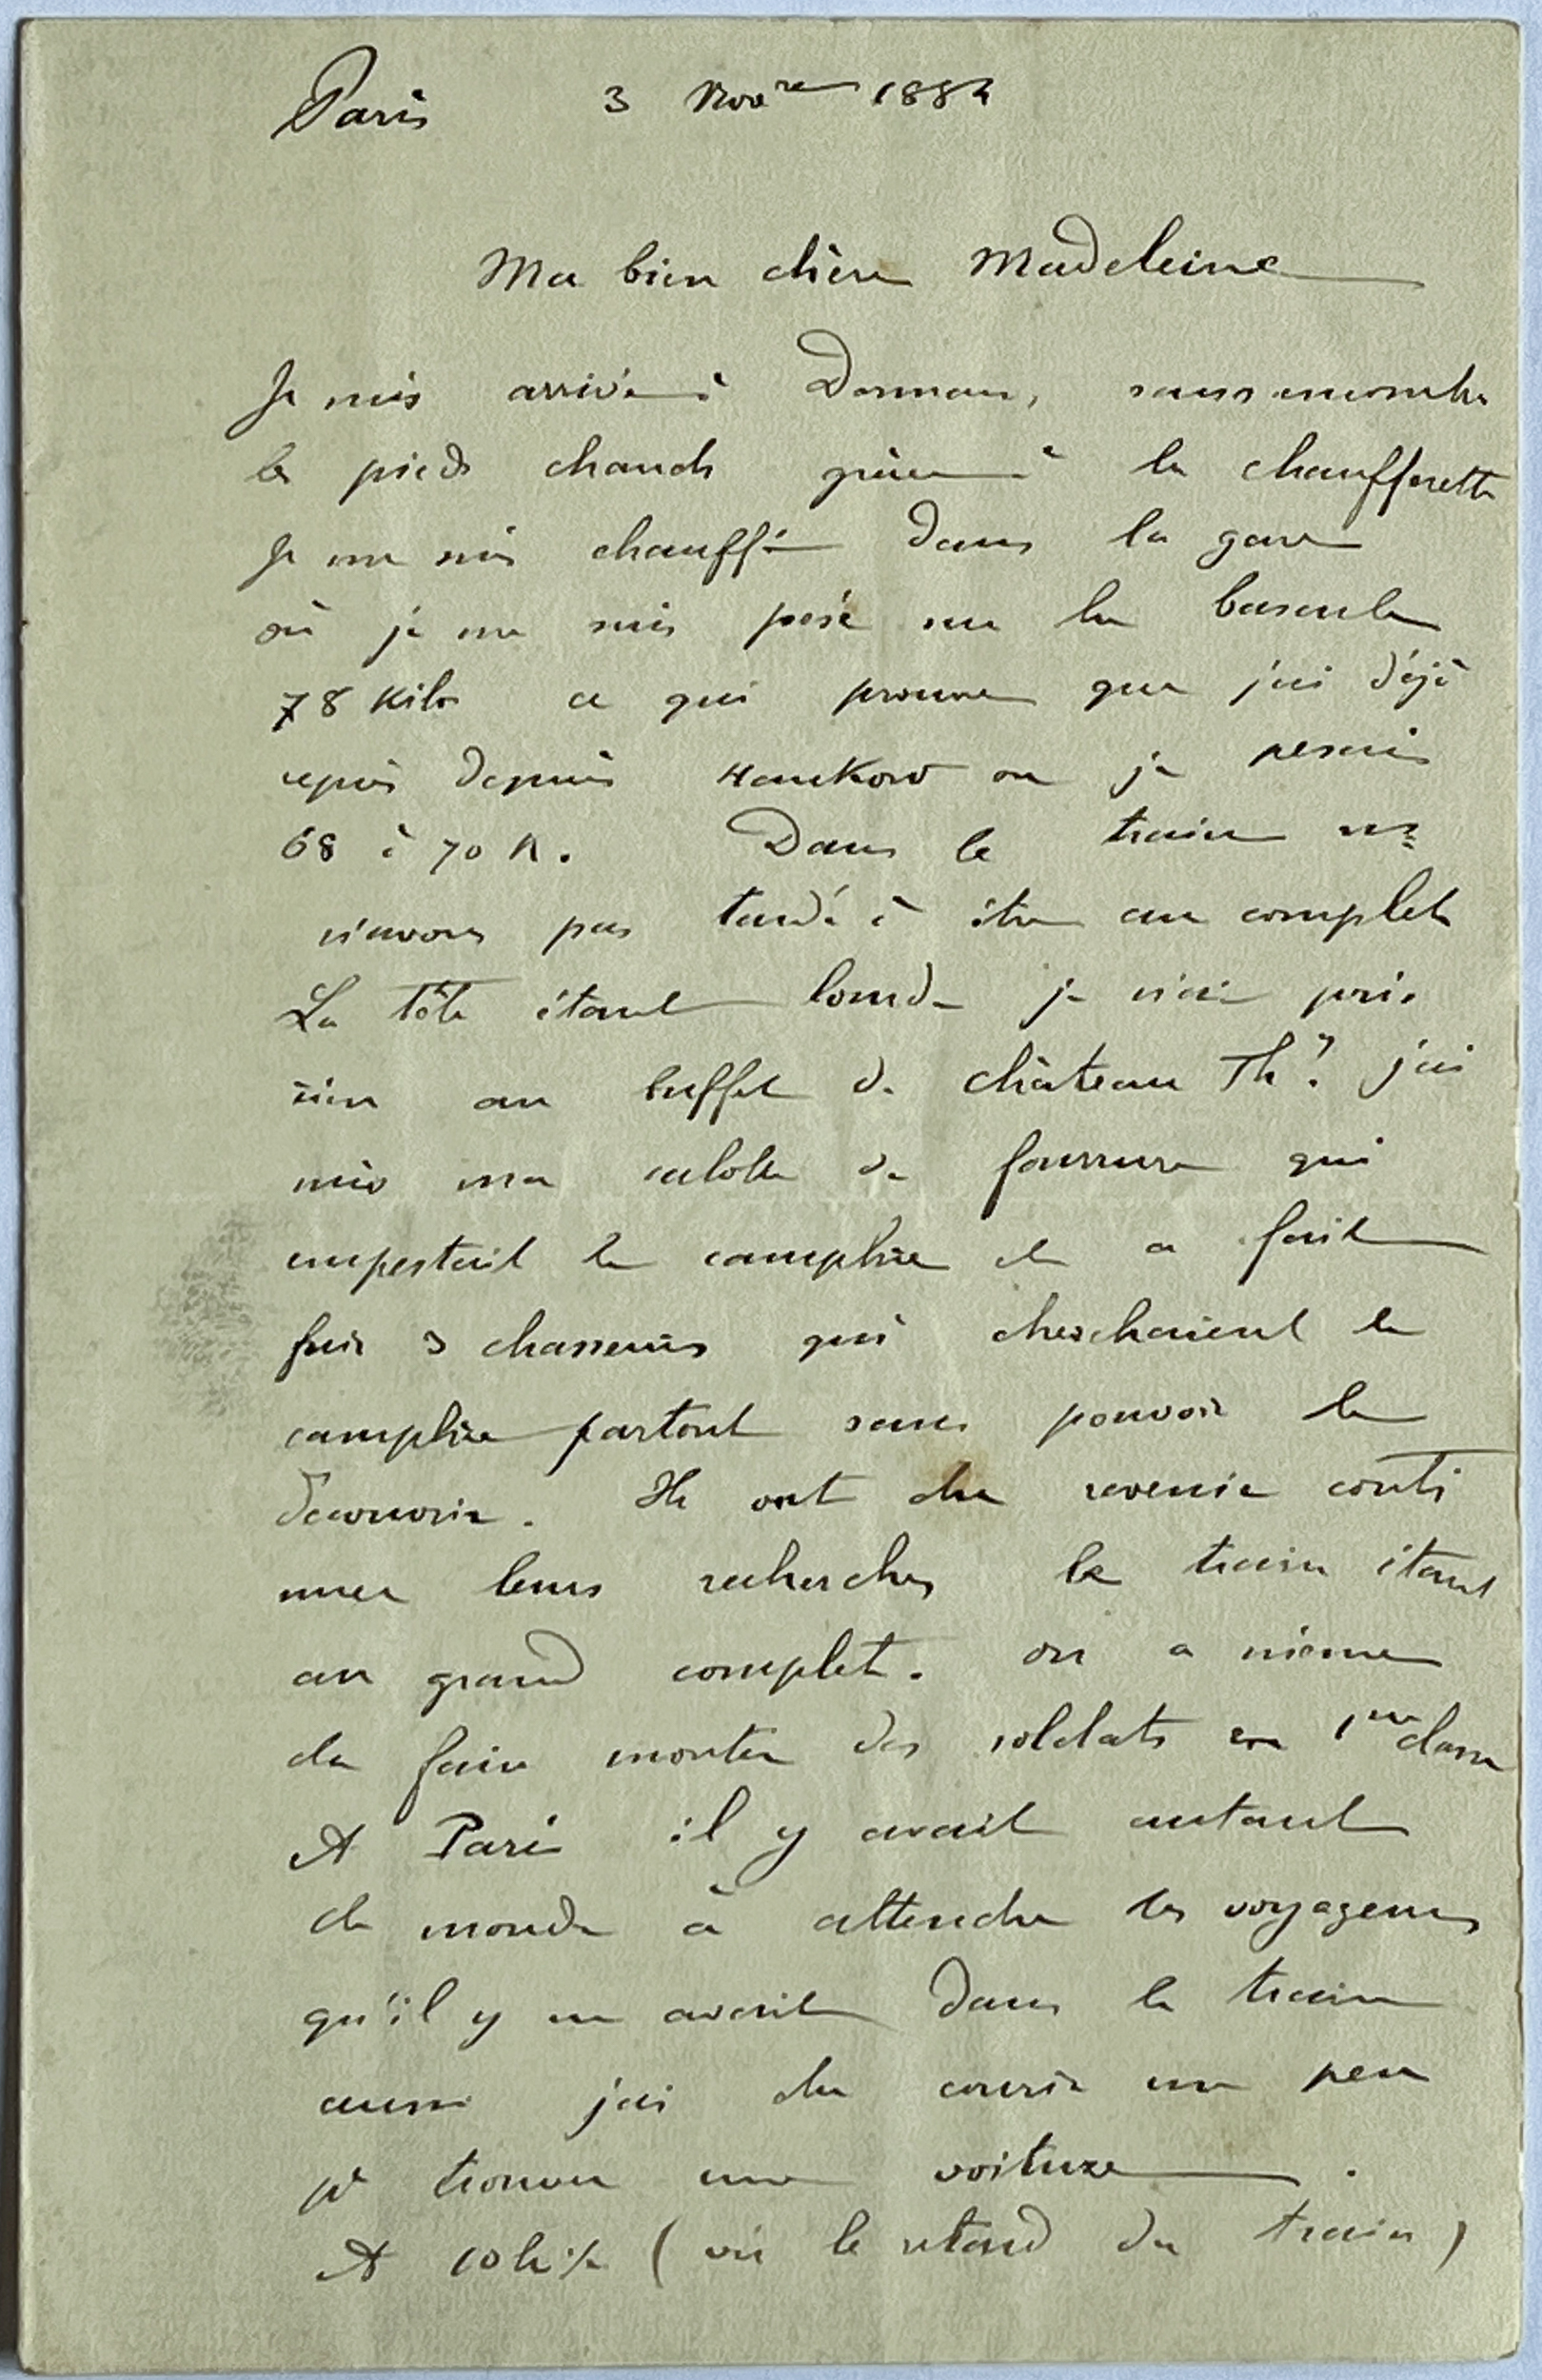 Paris 3 Nov^re 1884
Ma bien chère Madeleine
Je suis arrivé à Dormans, sans encombre
les pieds chauds grâce à la chaufferette
Je me suis chauffé dans la gare
où je me suis pesé sur la bascule
78 Kilos ce qui prouve que j'ai déjà
repris depuis Hankow ou je pesais
68 à 70 K. Dans le train ns
n'avons pas tardé à être au complet
La tête étant lourde je n'ai pris
rien au buffet de château Th^y. j'ai
mis ma calotte de fourrure qui
empestait le camphre et a fait
fuir 3 chasseurs qui cherchaient le
camphre partout sans pouvoir le
decouvrir. Ils ont du revenir conti
nuer leurs recherches le train étant
au grand complet. on a même
du faire monter des soldats en 1^ere classe
A Paris il y avait autant
de monde à attendre les voyageurs
qu'il y en avait dans le train
aussi j'ai du courir un peu
pr trouver une voiture.
A 10h ½ (vu le retard du train)